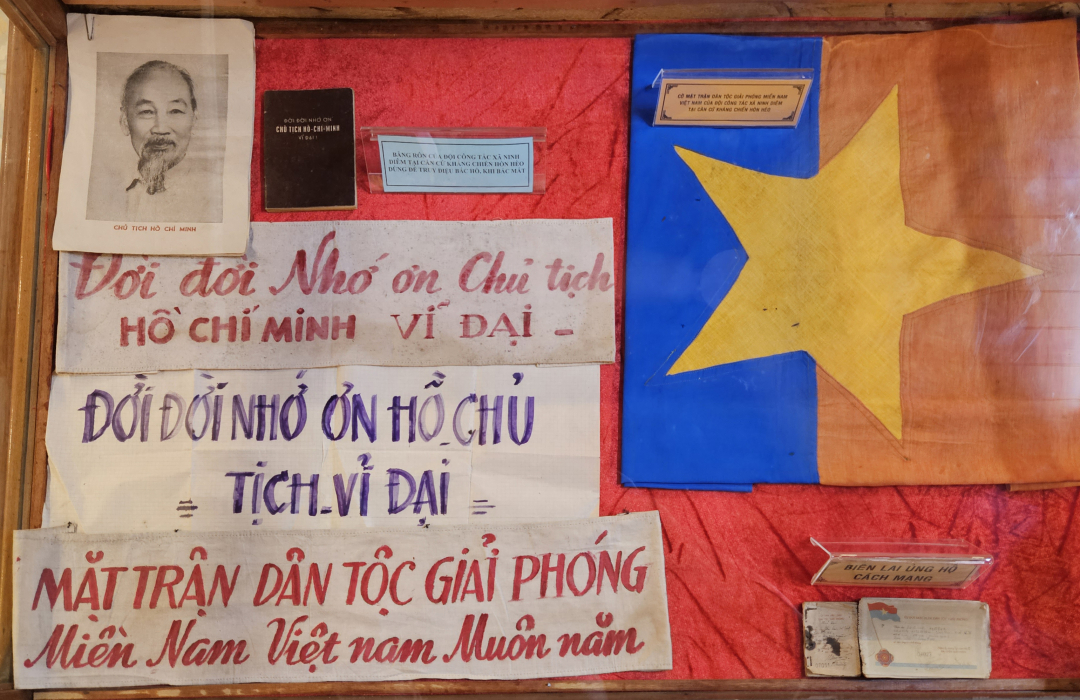 CHỦ TỊCH HỒ CHÍ MINH
ĐỜI ĐỜI NHỚ ƠN
CHỦ TỊCH HỒ-CHÍ-MINH
VĨ ĐẠI !
BĂNG RÔN CỦA ĐỘI CÔNG TÁC XÃ NINH
DIÊM TẠI CĂN CỨ KHÁNG CHIẾN HÒN HÈO
DÙNG ĐỂ TRUY ĐIỆU BÁC HỒ, KHI BÁC MẤT
CỜ MẶT TRẬN DÂN TỘC GIẢI PHÓNG MIỀN NAM
VIỆT NAM CỦA ĐỘI CÔNG TÁC XÃ NINH DIÊM
TẠI CĂN CỨ KHÁNG CHIẾN HÒN HÈO
Đời đời Nhớ ơn Chủ tịch
HỒ CHÍ MINH VĨ ĐẠI -
ĐỜI ĐỜI NHỚ ƠN HỒ CHỦ
= TỊCH-VĨ ĐẠI =
MẶT TRẬN DÂN TỘC GIẢI PHÓNG
Miền Nam Việt nam Muôn năm
BIÊN LAI ỦNG HỘ
CÁCH MẠNG